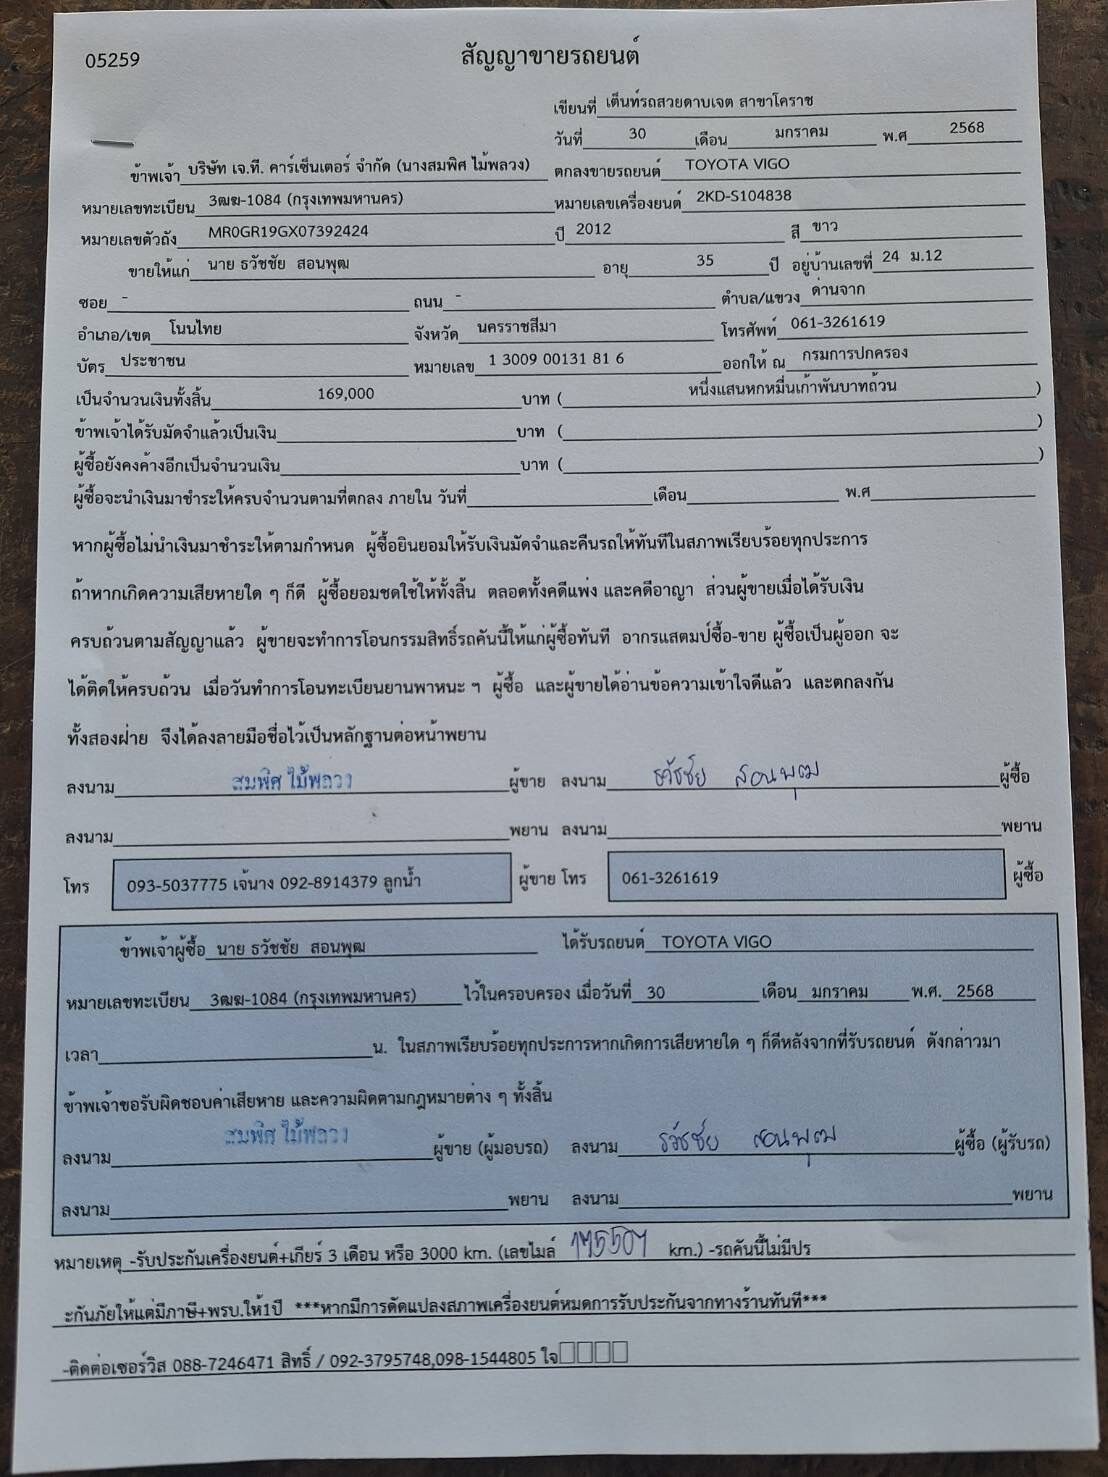 05259
สัญญาขายรถยนต์
เขียนที่ เต็นท์รถสวยดาบเจต สาขาโคราช
วันที่ 30 เดือน มกราคม พ.ศ 2568
ข้าพเจ้า บริษัท เจ.ที. คาร์เซ็นเตอร์ จำกัด (นางสมพิศ ไม้พลวง) ตกลงขายรถยนต์ TOYOTA VIGO
หมายเลขทะเบียน 3ฒฆ-1084 (กรุงเทพมหานคร) หมายเลขเครื่องยนต์ 2KD-S104838
หมายเลขตัวถัง MR0GR19GX07392424 ปี 2012 สี ขาว
ขายให้แก่ นาย ธวัชชัย สอนพุฒ อายุ 35 ปี อยู่บ้านเลขที่ 24 ม.12
ซอย - ถนน - ตำบล/แขวง ด่านจาก
อำเภอ/เขต โนนไทย จังหวัด นครราชสีมา โทรศัพท์ 061-3261619
บัตร ประชาชน หมายเลข 1 3009 00131 81 6 ออกให้ ณ กรมการปกครอง
เป็นจำนวนเงินทั้งสิ้น 169,000 บาท ( หนึ่งแสนหกหมื่นเก้าพันบาทถ้วน )
ข้าพเจ้าได้รับมัดจำแล้วเป็นเงิน บาท ( )
ผู้ซื้อยังคงค้างอีกเป็นจำนวนเงิน บาท ( )
ผู้ซื้อจะนำเงินมาชำระให้ครบจำนวนตามที่ตกลง ภายใน วันที่ เดือน พ.ศ
หากผู้ซื้อไม่นำเงินมาชำระให้ตามกำหนด ผู้ซื้อยินยอมให้รับเงินมัดจำและคืนรถให้ทันทีในสภาพเรียบร้อยทุกประการ
ถ้าหากเกิดความเสียหายใด ๆ ก็ดี ผู้ซื้อยอมชดใช้ให้ทั้งสิ้น ตลอดทั้งคดีแพ่ง และคดีอาญา ส่วนผู้ขายเมื่อได้รับเงิน
ครบถ้วนตามสัญญาแล้ว ผู้ขายจะทำการโอนกรรมสิทธิ์รถคันนี้ให้แก่ผู้ซื้อทันที อากรแสตมป์ซื้อ-ขาย ผู้ซื้อเป็นผู้ออก จะ
ได้ติดให้ครบถ้วน เมื่อวันทำการโอนทะเบียนยานพาหนะ ฯ ผู้ซื้อ และผู้ขายได้อ่านข้อความเข้าใจดีแล้ว และตกลงกัน
ทั้งสองฝ่าย จึงได้ลงลายมือชื่อไว้เป็นหลักฐานต่อหน้าพยาน
ลงนาม สมพิศ ไม้พลวง ผู้ขาย ลงนาม ธวัชชัย สอนพุฒ ผู้ซื้อ
ลงนาม พยาน ลงนาม พยาน
โทร 093-5037775 เจ้นาง 092-8914379 ลูกน้ำ ผู้ขาย โทร 061-3261619 ผู้ซื้อ
ข้าพเจ้าผู้ซื้อ นาย ธวัชชัย สอนพุฒ ได้รับรถยนต์ TOYOTA VIGO
หมายเลขทะเบียน 3ฒฆ-1084 (กรุงเทพมหานคร) ไว้ในครอบครอง เมื่อวันที่ 30 เดือน มกราคม พ.ศ. 2568
เวลา น. ในสภาพเรียบร้อยทุกประการหากเกิดการเสียหายใด ๆ ก็ดีหลังจากที่รับรถยนต์ ดังกล่าวมา
ข้าพเจ้าขอรับผิดชอบค่าเสียหาย และความผิดตามกฎหมายต่าง ๆ ทั้งสิ้น
ลงนาม สมพิศ ไม้พลวง ผู้ขาย (ผู้มอบรถ) ลงนาม ธวัชชัย สอนพุฒ ผู้ซื้อ (ผู้รับรถ)
ลงนาม พยาน ลงนาม พยาน
หมายเหตุ -รับประกันเครื่องยนต์+เกียร์ 3 เดือน หรือ 3000 km. (เลขไมล์ km.) -รถคันนี้ไม่มีปร
ะกันภัยให้แต่มีภาษี+พรบ.ให้1ปี ***หากมีการดัดแปลงสภาพเครื่องยนต์หมดการรับประกันจากทางร้านทันที***
-ติดต่อเซอร์วิส 088-7246471 สิทธิ์ / 092-3795748,098-1544805 ใจ